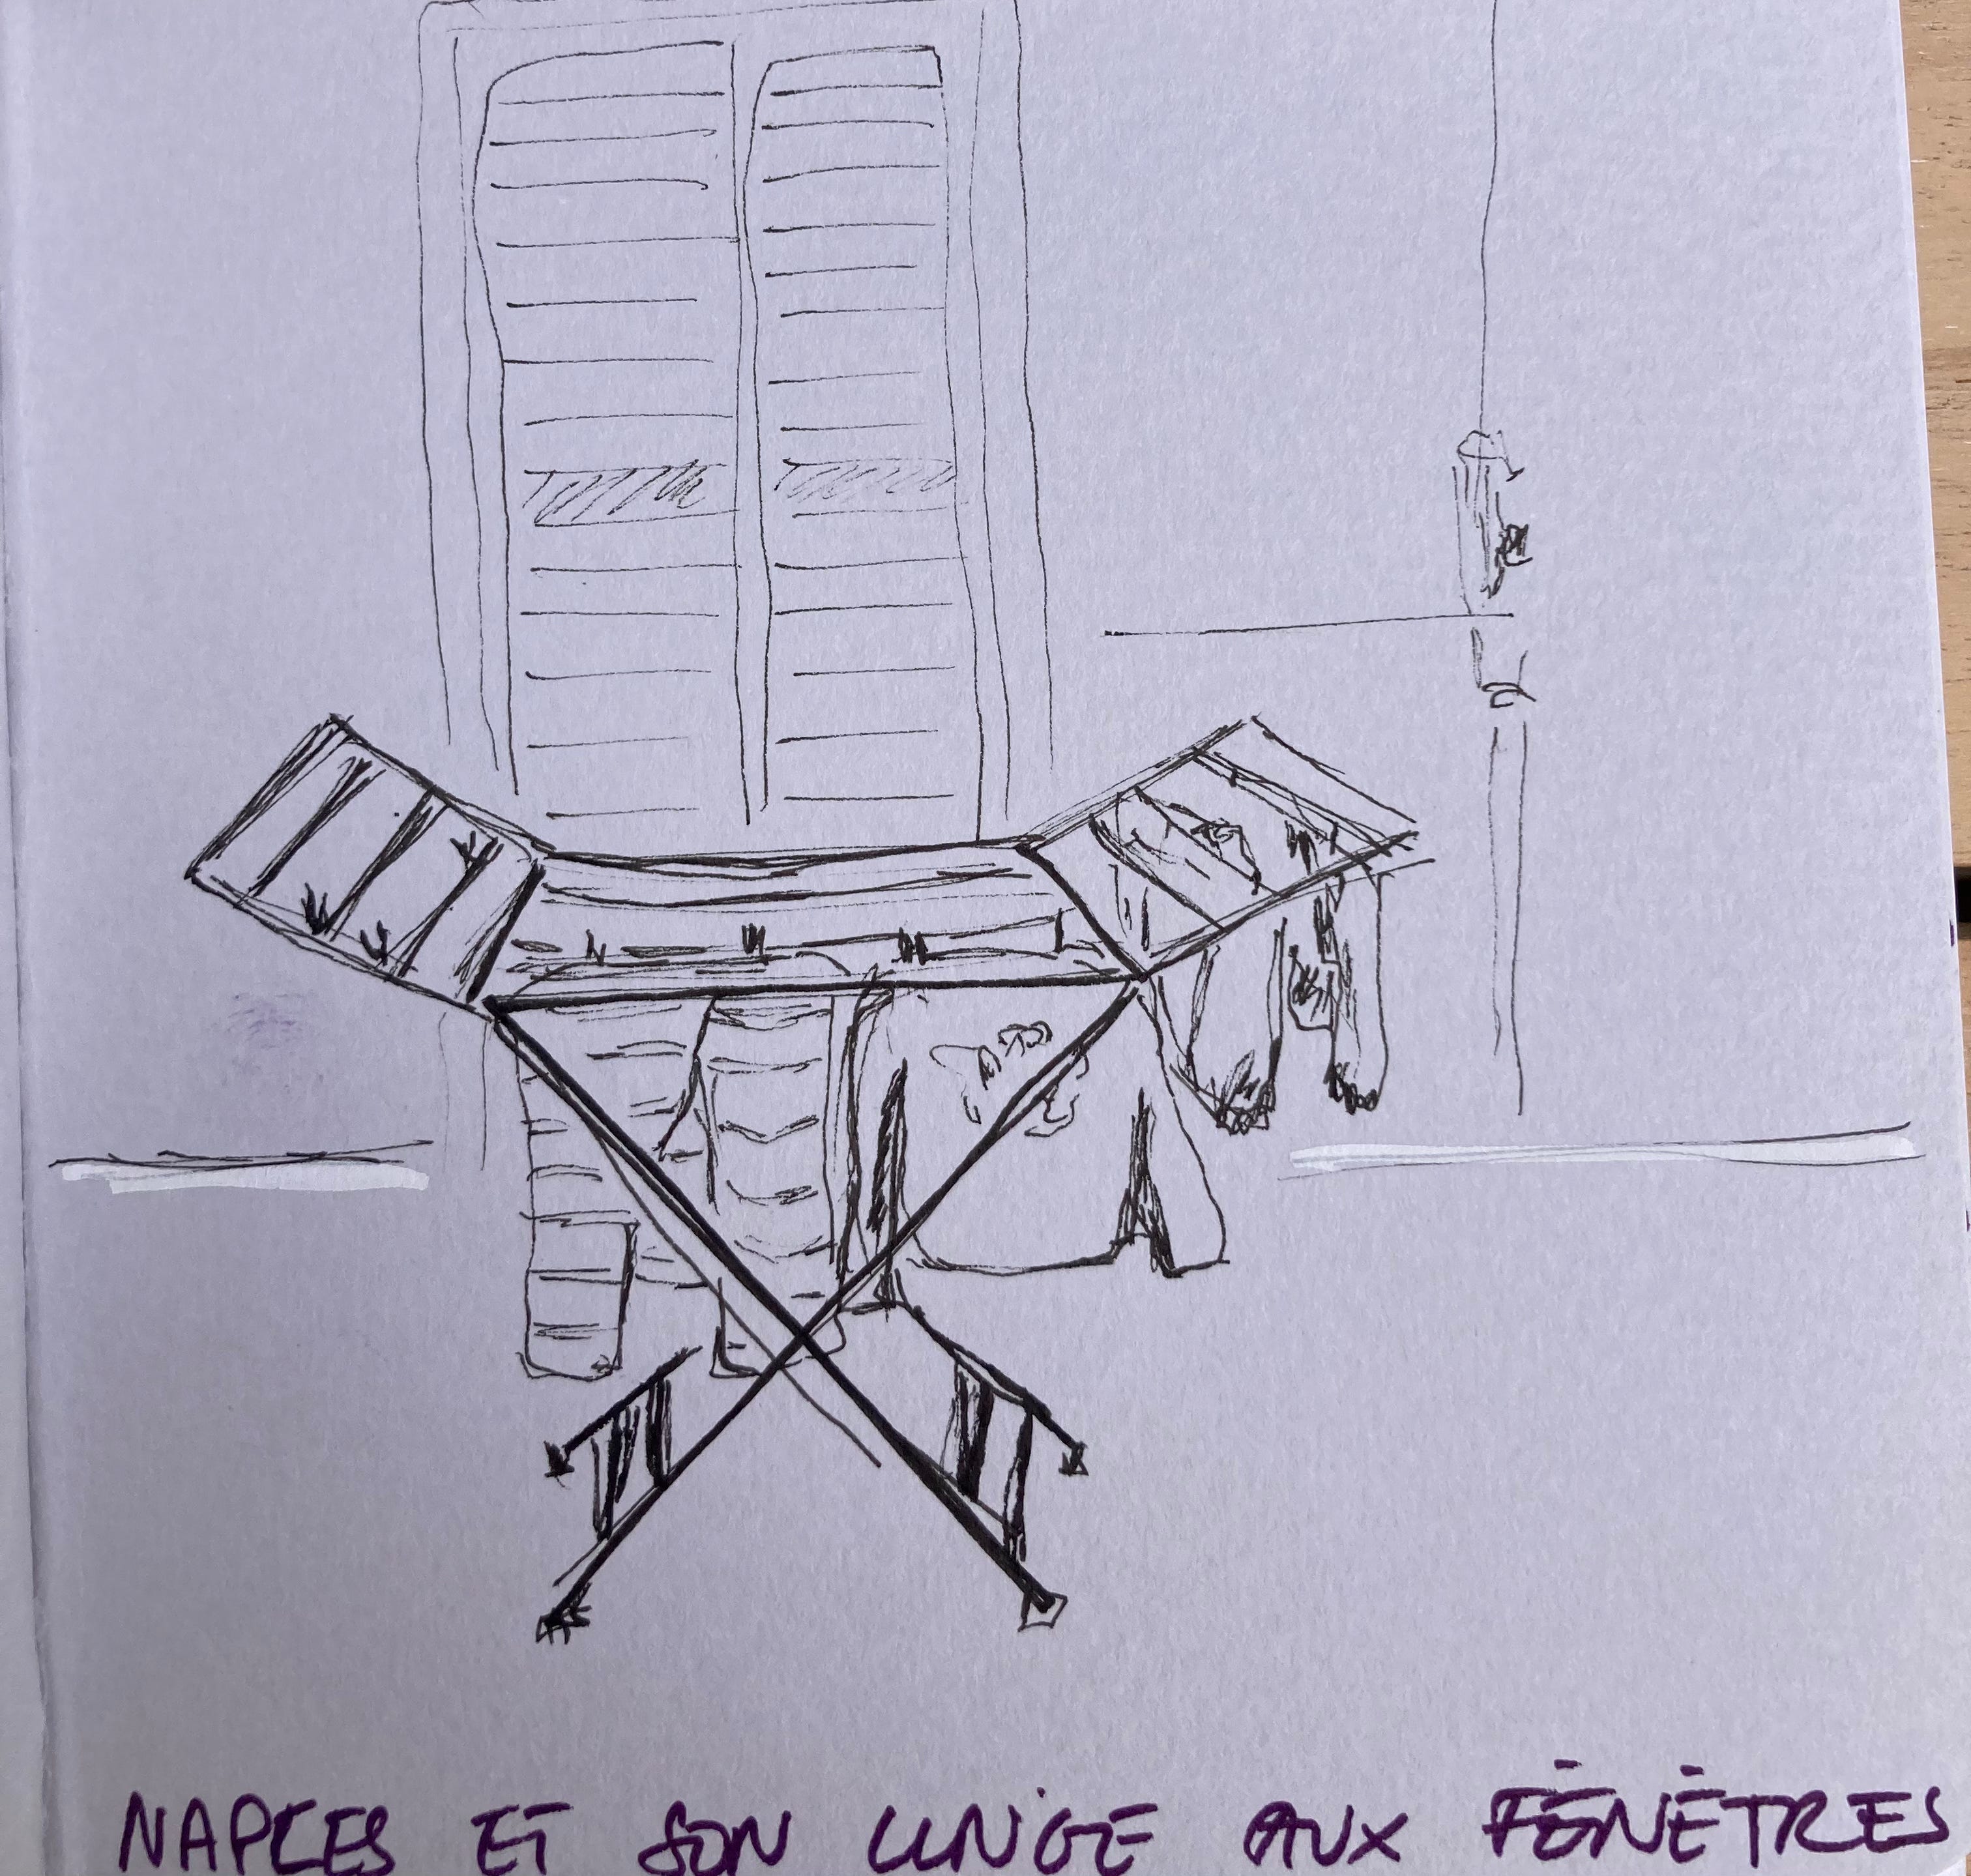 NAPLES ET SON LINGE AUX FÉNÉTRES